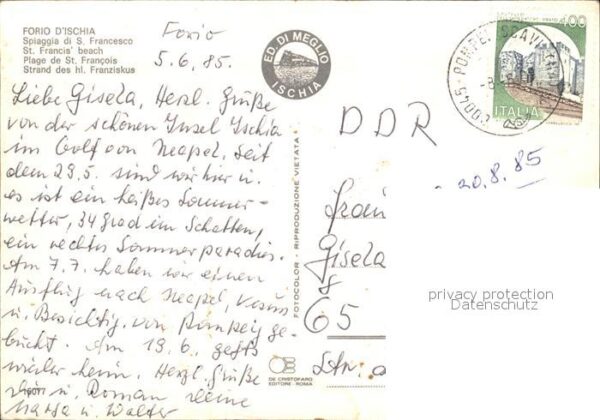 FORIO D'ISCHIA
Spiaggia di S. Francesco
St. Francis' beach
Plage de St. François
Strand des hl. Franziskus
Forio
5.6.85.
Liebe Gisela, Herzl. Grüße
von der schönen Insel Ischia
im Golf von Neapel. Seit
dem 29.5. sind wir hier u.
es ist ein heißes Sommer-
wetter, 34 grad im Schatten,
ein rechtes Sommerparadis.
Am 7.7. haben wir einen
Ausflug nach Neapel, Vesuv
u. Besichtig. von Pompeij ge-
bucht. Am 19.6. gehts
wieder heim. Herzl. Grüße
Roman
u. Walter
ED. DI MEGLIO
ISCHIA
FOTOCOLOR - RIPRODUZIONE VIETATA
DE CRISTOFARO
EDITORI - ROMA
400
ITALIA
80045 POMPEI SCAVI
DDR
20.8.85
Frau
Gisela
65
Str.
privacy protection
Datenschutz